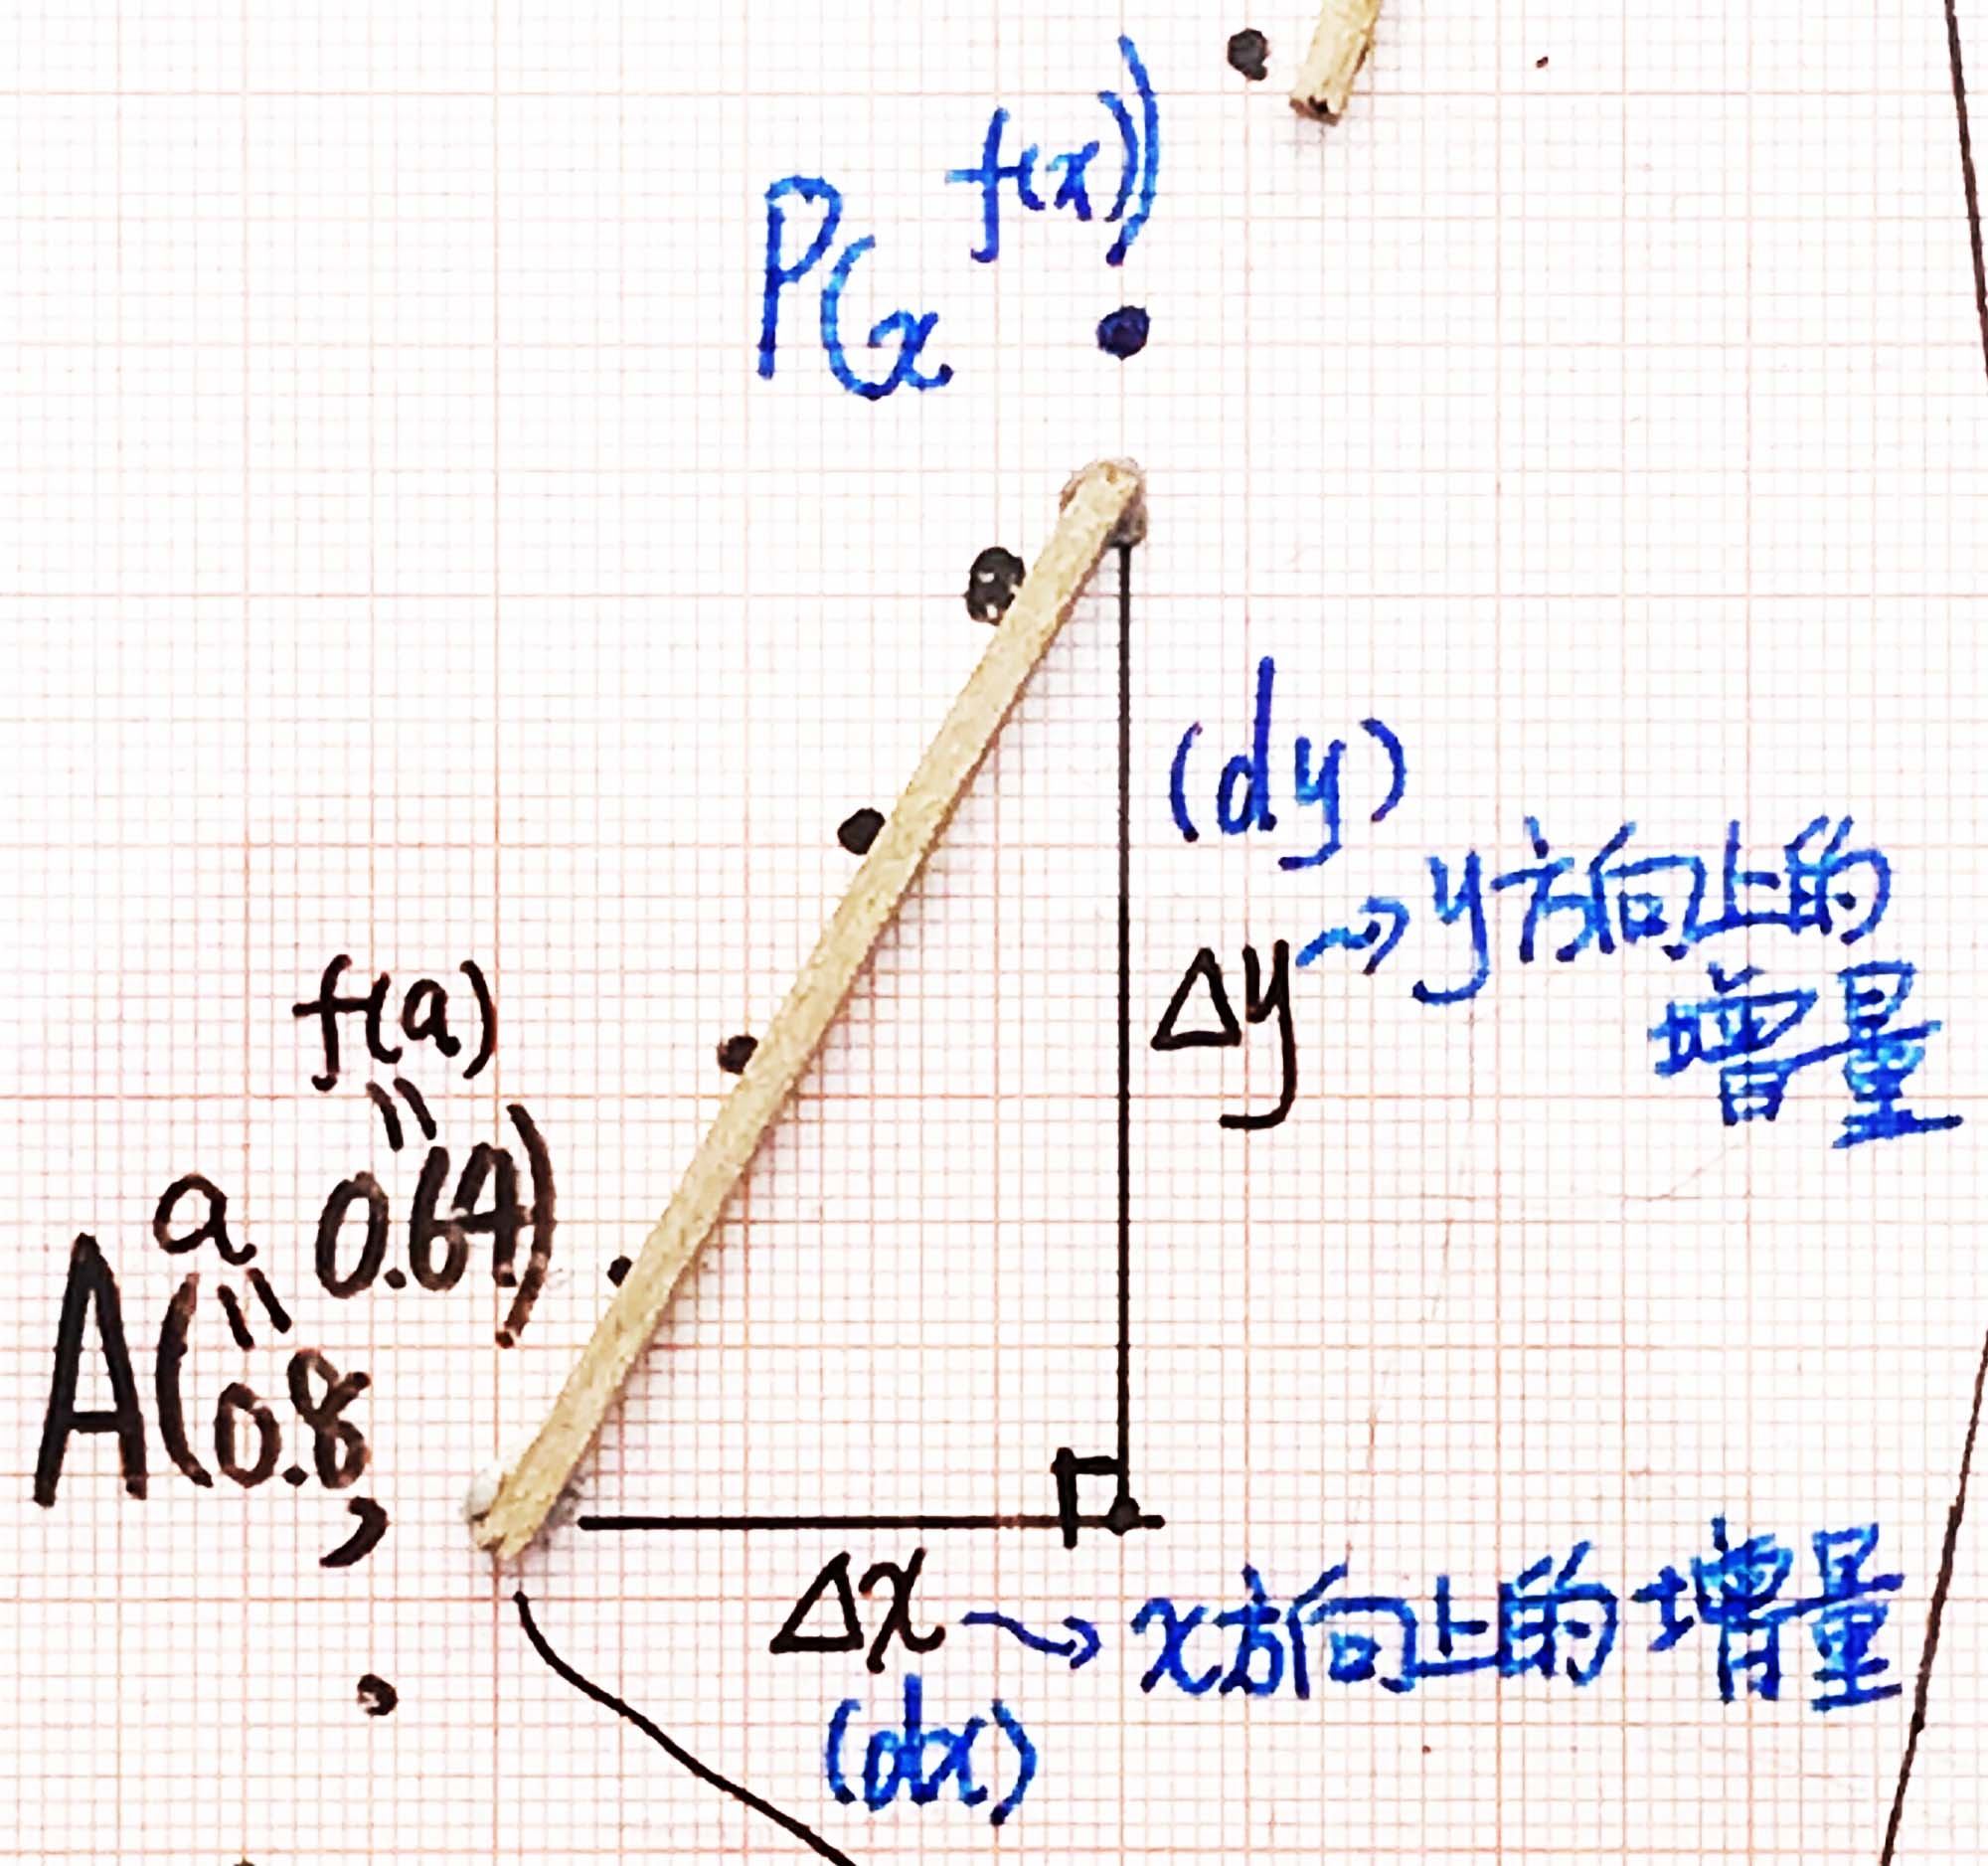 P(x
f(x))
(dy)
Δy → y方向上的
增量
f(a)
=
a
=
A(0.8,
0.64)
Δx → x方向上的增量
(dx)